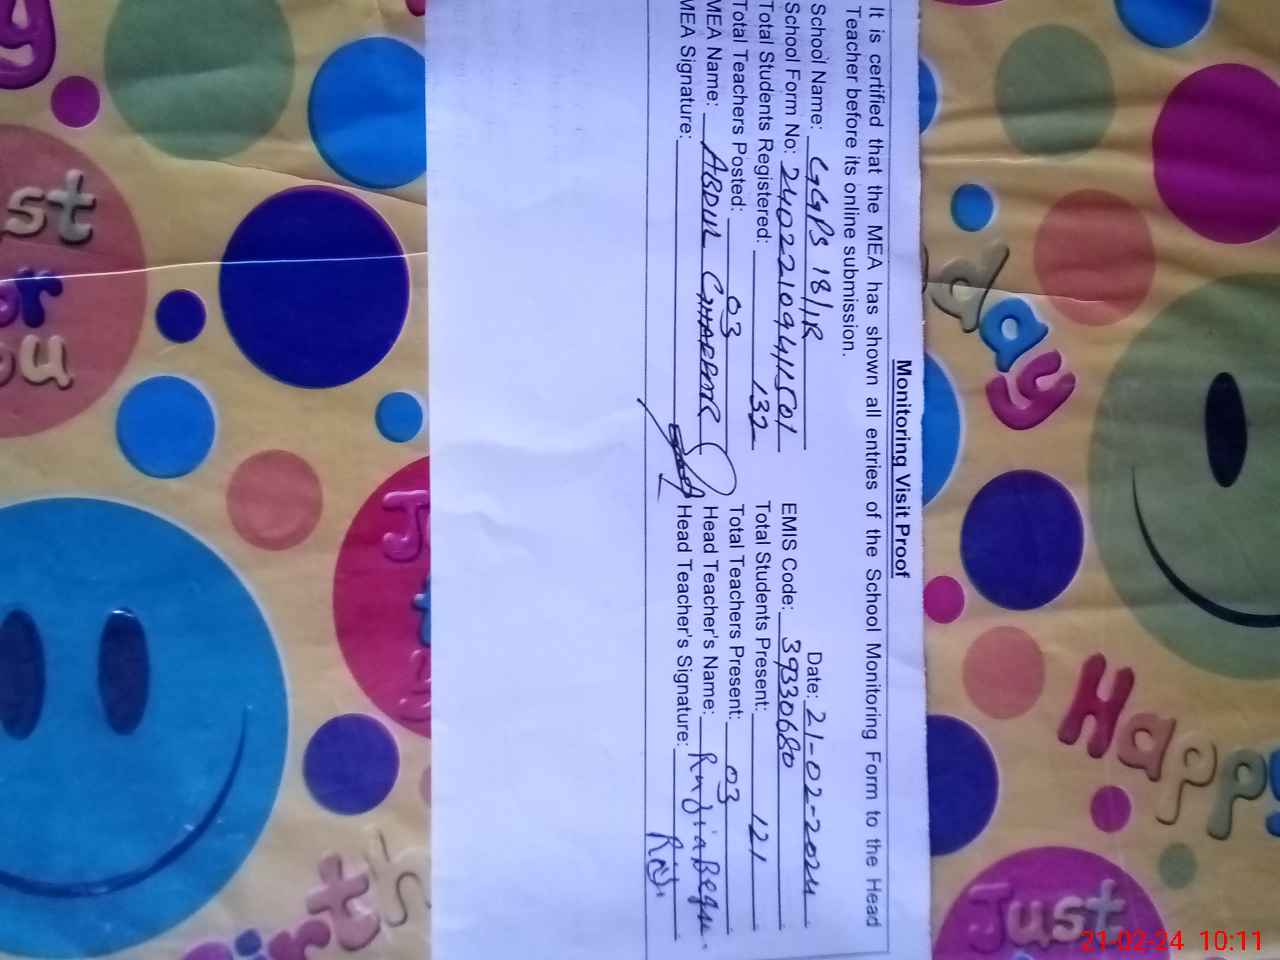 Monitoring Visit Proof
It is certified that the MEA has shown all entries of the School Monitoring Form to the Head
Teacher before its online submission.
School Name: GGPS 18/1R Date: 21-02-2024
School Form No: 2402210941501 EMIS Code: 39330680
Total Students Registered: 132 Total Students Present: 121
Total Teachers Posted: 03 Total Teachers Present: 03
MEA Name: ABDUL Head Teacher's Name:
MEA Signature: Head Teacher's Signature:
day
Happy
Just
Just
st
or
ou
irth
21-02-24 10:11